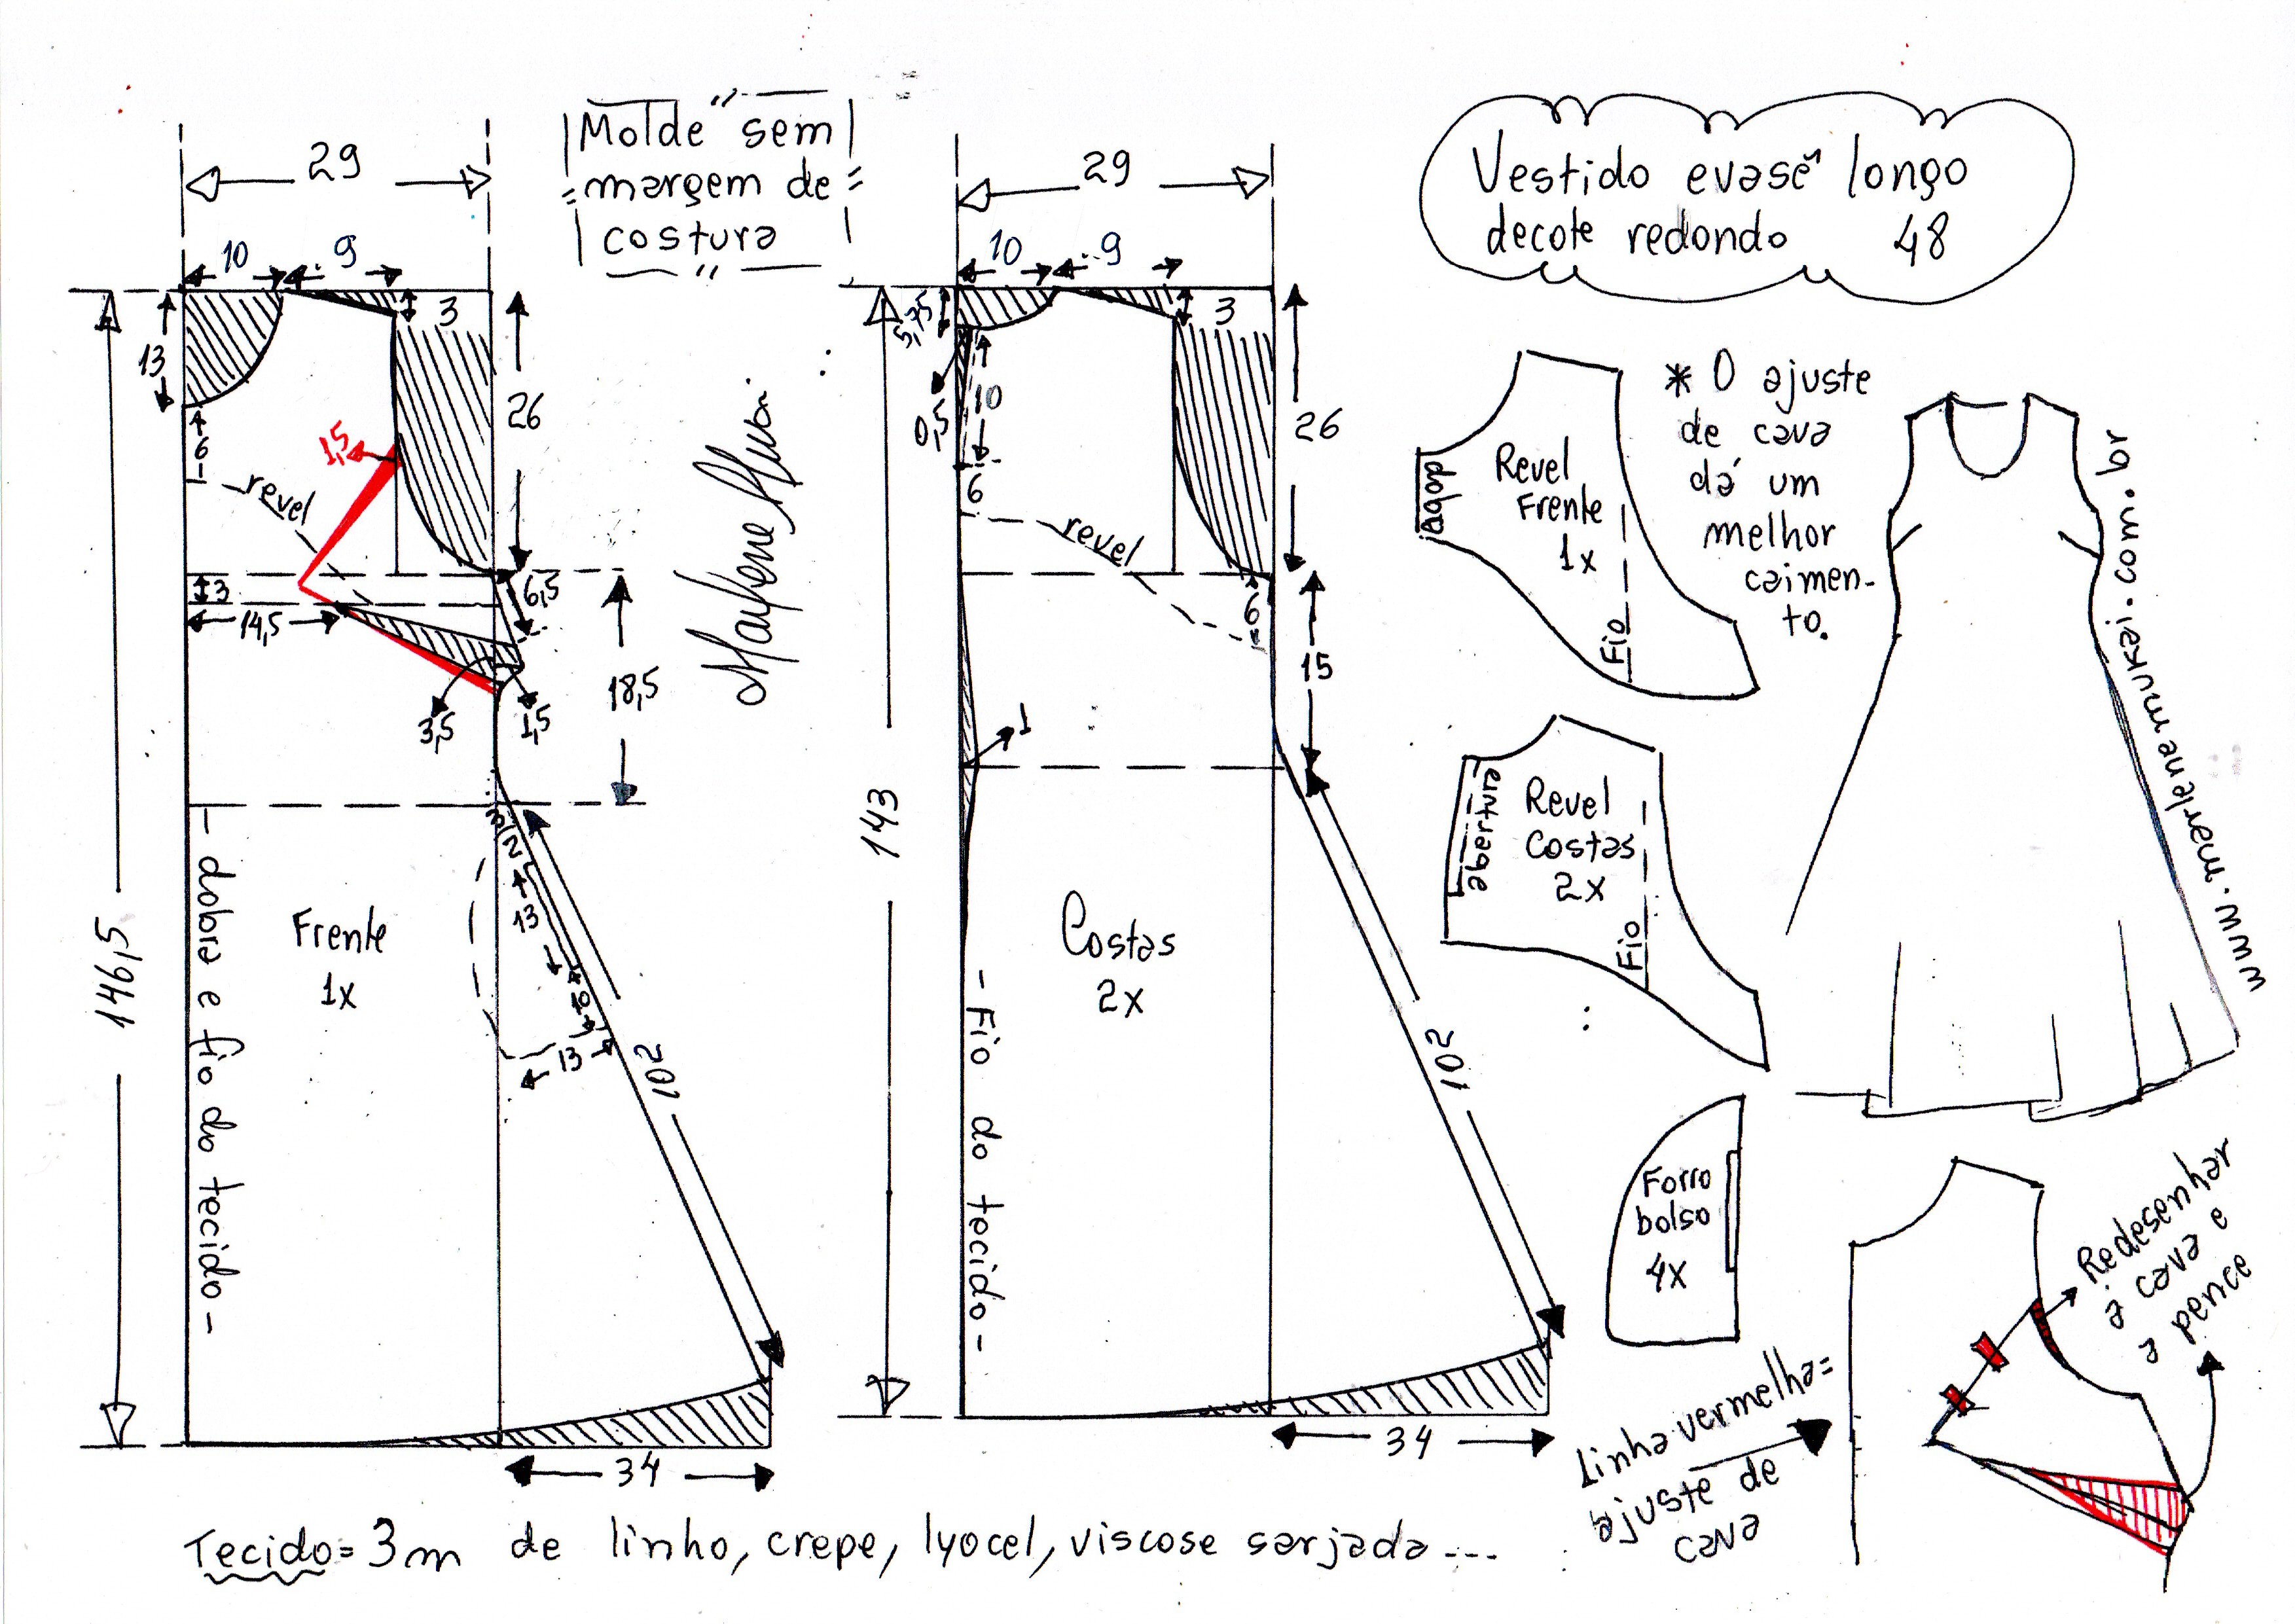 Molde sem
margem de
costura
Vestido evasê longo
decote redondo 48
29
10 9
3
13
26
6
1,5
revel
3
14,5
6,5
3,5
1,5
18,5
3
2
13
10
13
102
146,5
Frente
1x
- dobra e fio do tecido -
34
29
10 9
5,75
3
0,5
10
26
6
revel
6
15
1
143
Costas
2x
- Fio do tecido -
102
34
Revel
Frente
1x
dobra
Fio
* O ajuste
de cava
dá um
melhor
caimen-
to.
abertura
Revel
Costas
2x
Fio
www.marlenemukai.com.br
Forro
bolso
4x
Redesenhar
a cava e
a pence
Linha vermelha=
ajuste de
cava
Tecido= 3m de linho, crepe, lyocel, viscose sarjada...